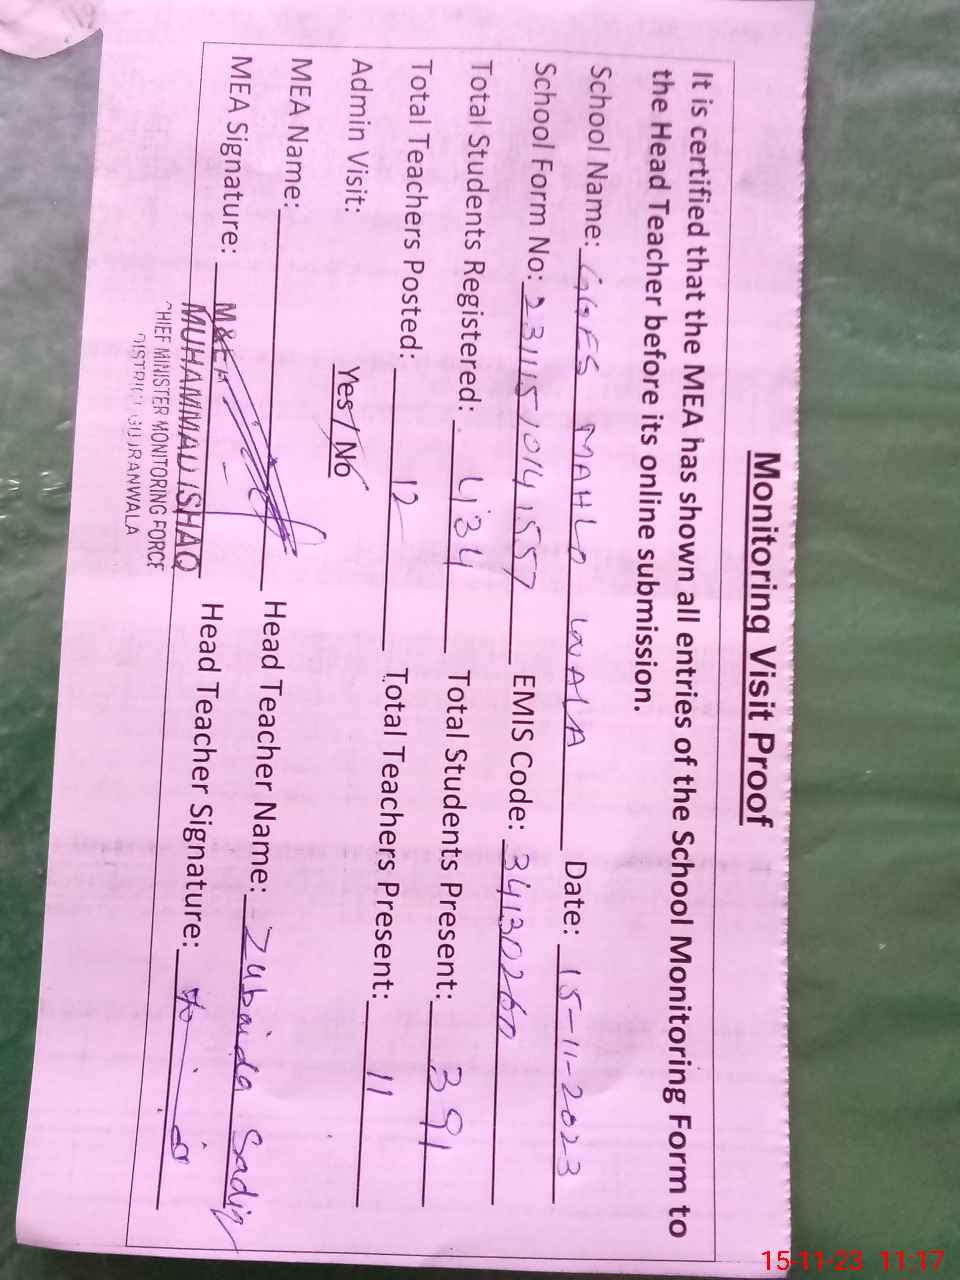 Monitoring Visit Proof
It is certified that the MEA has shown all entries of the School Monitoring Form to
the Head Teacher before its online submission.
School Name: GGES MAHLO WALA Date: 15-11-2023
School Form No: EMIS Code: 34130260
Total Students Registered: 434 Total Students Present: 391
Total Teachers Posted: 12 Total Teachers Present: 11
Admin Visit: Yes / No
MEA Name: Head Teacher Name: Zubaida Sadiq
MEA Signature: Head Teacher Signature:
MUHAMMAD ISHAQ
CHIEF MINISTER MONITORING FORCE
DISTRICT GUJRANWALA
15-11-23 11:17